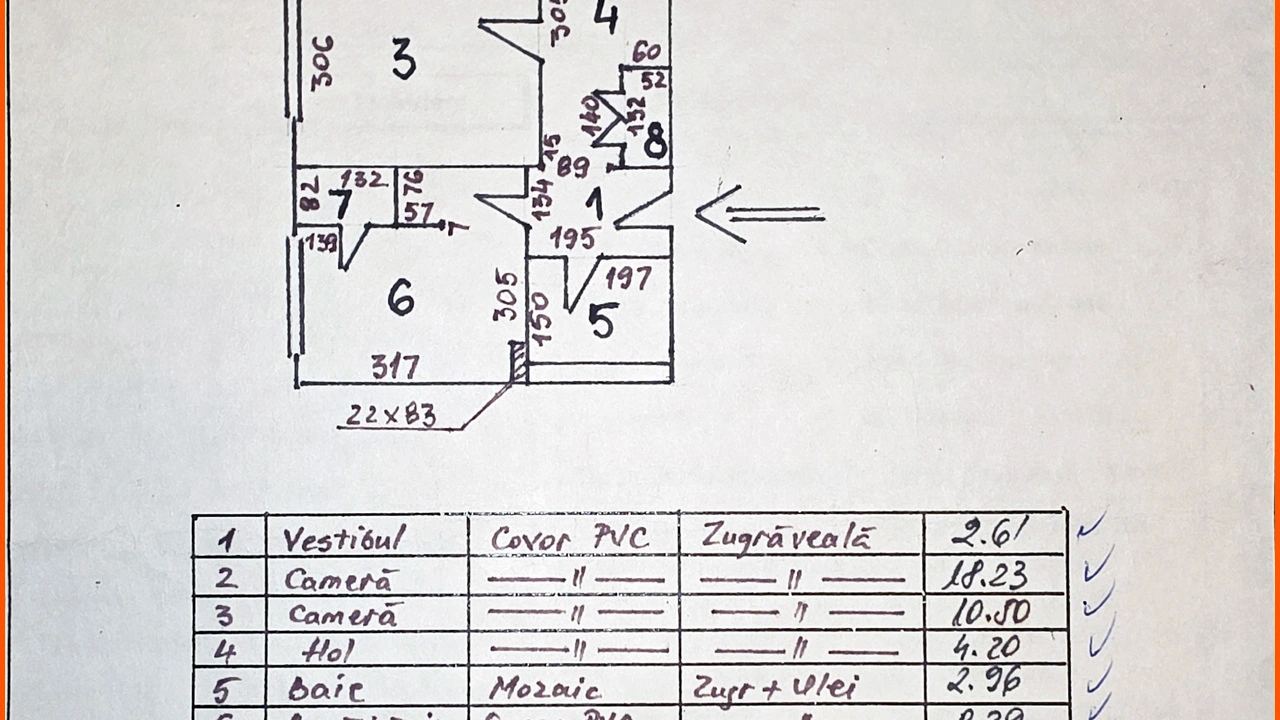 305
4
3
306
60
52
140
132
8
15
89
82
132
7
76
57
134
1
195
139
197
6
305
150
5
317
22x83
1 Vestibul Covor PVC Zugrăveală 2.61
2 Cameră —〃— —〃— 18.23
3 Cameră —〃— —〃— 10.80
4 Hol —〃— —〃— 4.20
5 Baie Mozaic Zugr + Ulei 2.96